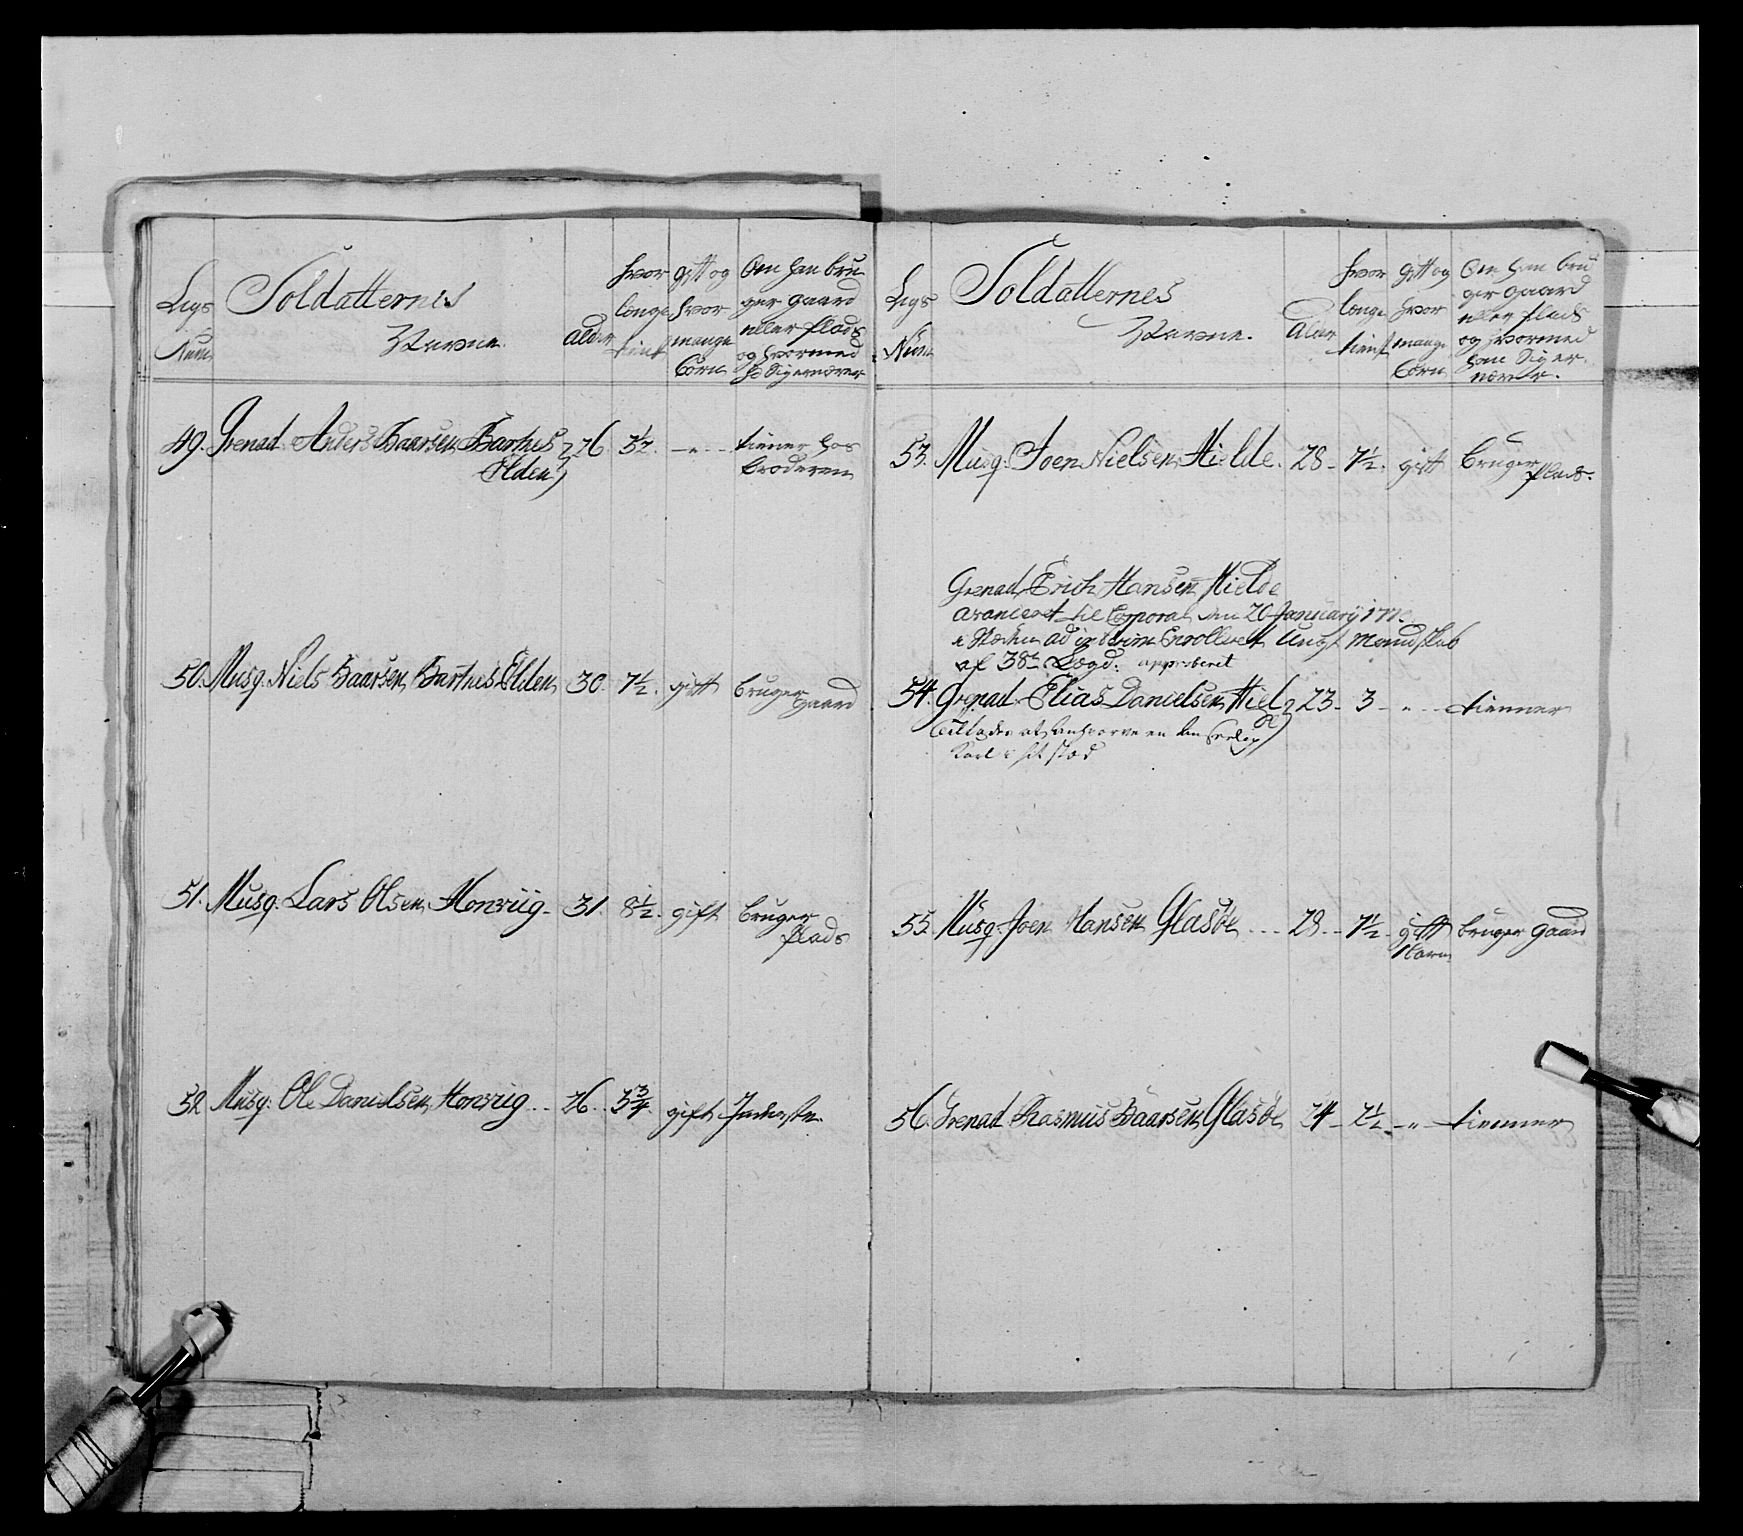 Legs
Num
Soldatternes
Navne.
Alder
hvor
længe
tient
gift og
hvor
mange
børn
Om han bru
ger gaard
eller plads
og hvormed
hand sig ernærer
49. Grenad. Anders Baarsen Barhues 26 3½. - " - tiener hos
Elden broderen
50. Musq. Niels Baarsen Barhues Elden 30. 7½. gift bruger
gaard
51. Musq. Lars Olsen Homviig - 31. 8½. gift bruger
plads
52 Musq. Ole Danielsen Homviig - 26. 5¾. gift Inderste.
Legs
Num
Soldatternes
Navne.
Alder
hvor
længe
tient
gift og
hvor
mange
børn
Om han bru
ger gaard
eller plads
og hvormed
han sig er
nærer.
53. Musq. Joen Nielsen Hielde. 28 - 7½. gift bruger
plads.
Grenad. Erich Hansen Hielde
avanceret til Corporal den 26 Januarij
ad interim Enrolleret Ungt Mandskab
af 38te Lægd. approberet
54. Grenad. Elias Danielsen Hiel 23 - 3 - " - tienner
de
at anhverve en
Karl i sit stæd
55. Musq. Joen Hansen Glasøe - 28 - 7½ - gift bruger gaard
1 barn
56. Grenad. Rasmus Baarsen Glasøe 24 - 2½ - " - tienner